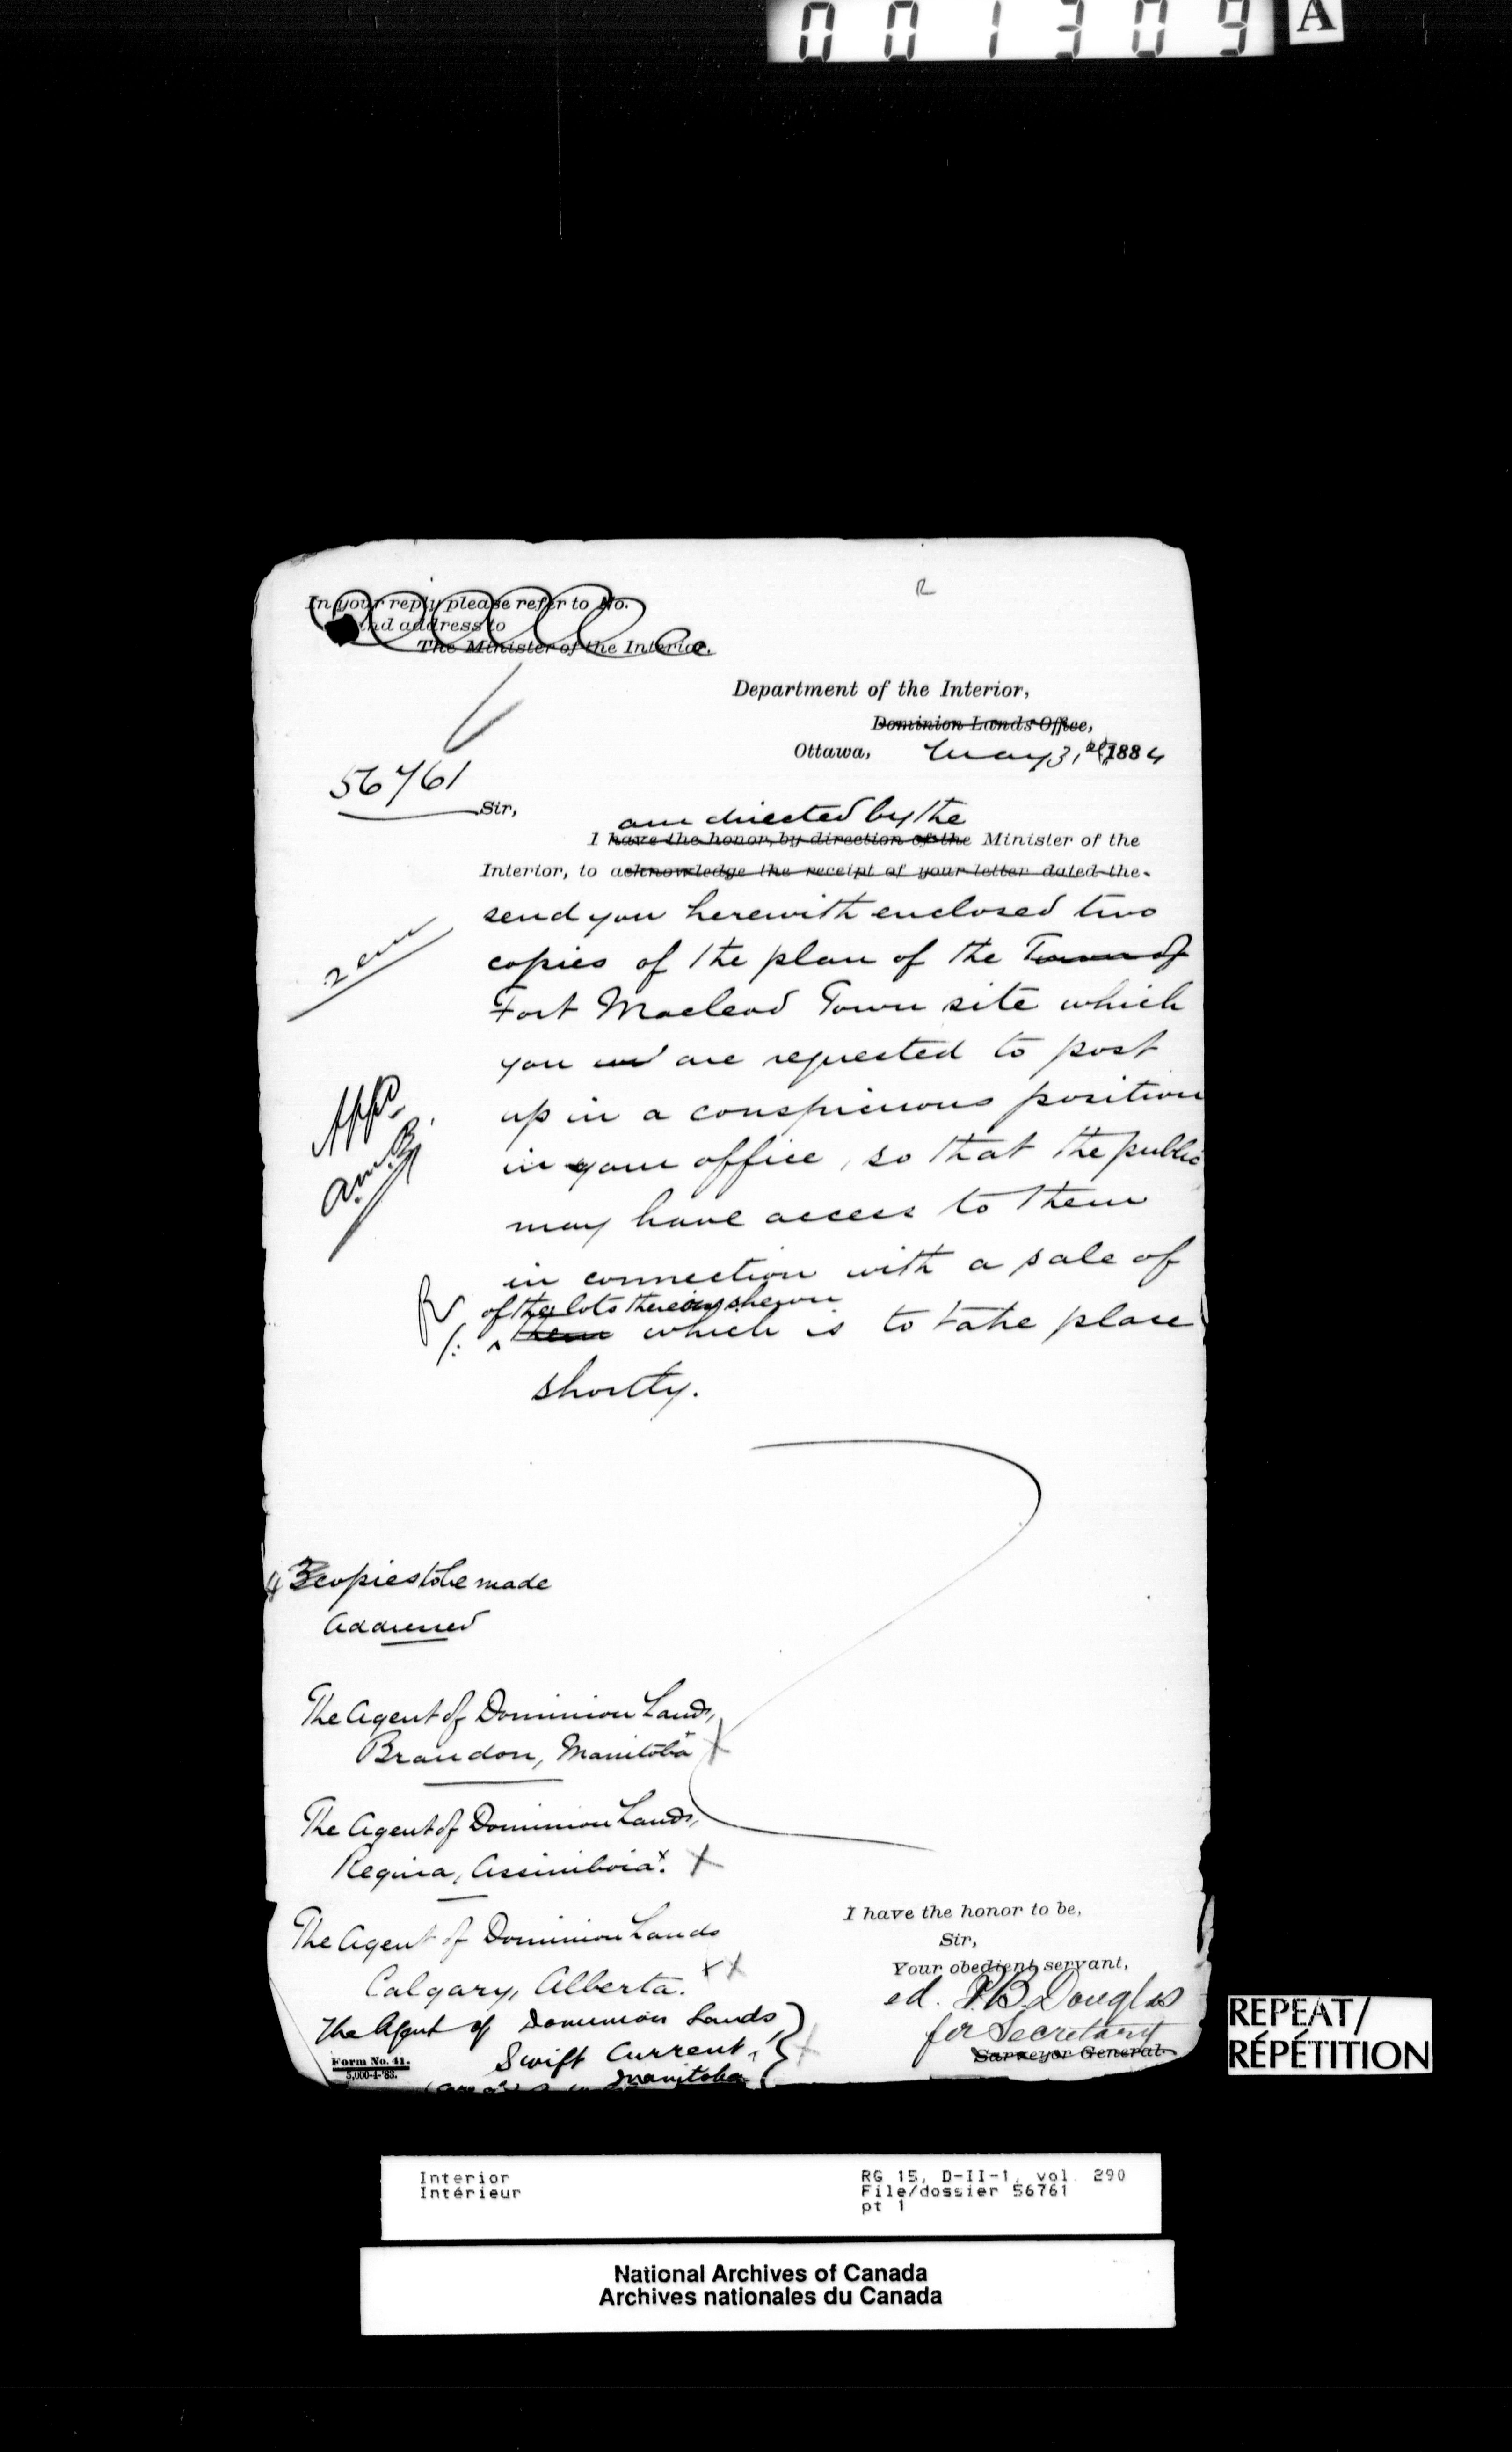 001309 A
R
In your reply please refer to No.
and address to
The Minister of the Interior.
Department of the Interior,
Dominion Lands Office,
Ottawa, May 31st 1884
56761
Sir,
am directed by the
I have the honor, by direction of the Minister of the
Interior, to acknowledge the receipt of your letter dated the
send you herewith enclosed two
copies of the plan of the Town of
Fort Macleod Town site which
you are requested to post
up in a conspicuous position
in your office, so that the public
may have access to them
in connection with a sale of
of the lots thereon shewn
them which is to take place
shortly.
2 enc
3 copies to be made
Addressed
The Agent of Dominion Lands,
Brandon, Manitoba
The Agent of Dominion Lands,
Regina, Assiniboia.
The Agent of Dominion Lands
Calgary, Alberta.
The Agent of Dominion Lands
Swift Current,
Manitoba
I have the honor to be,
Sir,
Your obedient servant,
P.B. Douglas
for Secretary
Surveyor General.
Form No. 41.
5,000-4-'83.
REPEAT/
RÉPÉTITION
Interior
Intérieur
RG 15, D-II-1, vol. 290
File/dossier 56761
pt 1
National Archives of Canada
Archives nationales du Canada